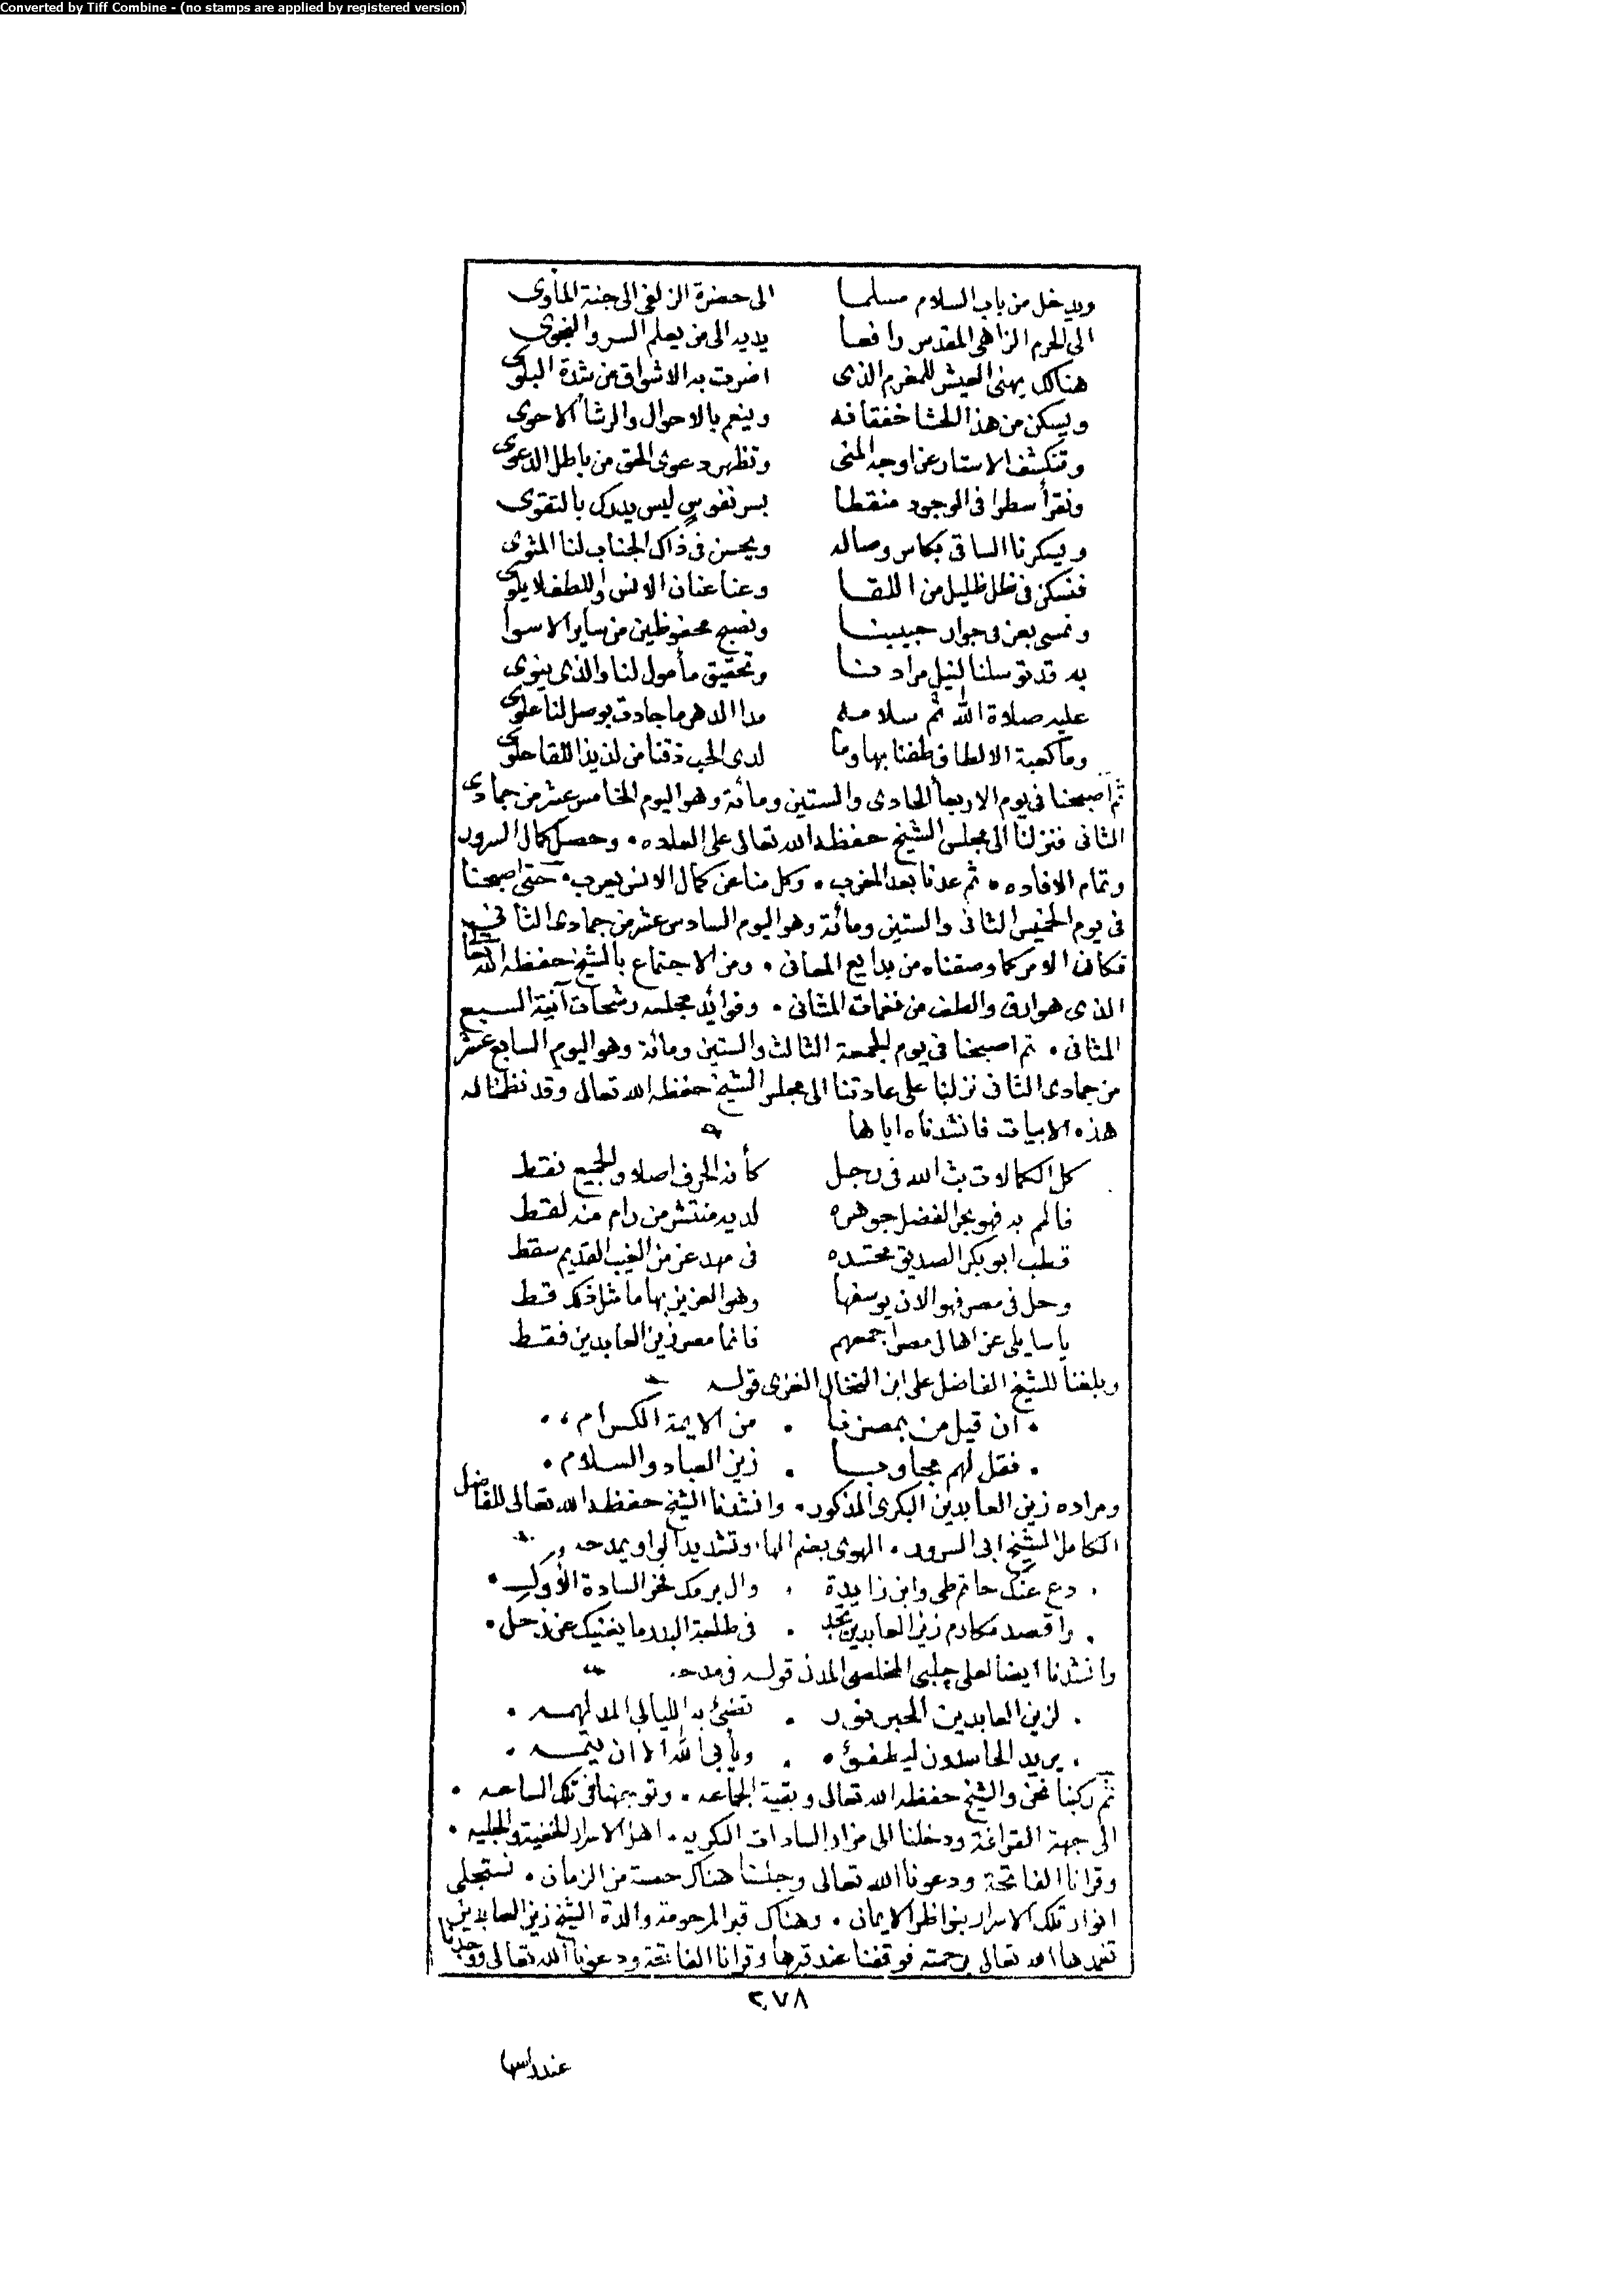 Converted by Tiff Combine - (no stamps are applied by registered version)
ويدخل من باب السلام مسلما الى حضرة الزلفى الى جنة المأوى
الى الحرم الزاهى المقدس رافعا يديه الى من يعلم السر والنجوى
هنالك يهنى العيش للمغرم الذى اضرت به الاشواق من شدة البلوى
ويسكن من هذا الحشا خفقانه وينعم بالاحوال والرشأ الاحوى
وتنكشف الاستار عن اوجه المنى وتظهر دعوى الحق من باطل الدعوى
ونقرأ سطرا فى الوجود منقطا بسر نفوس ليس يدرك بالتقوى
ويسكرنا الساقى بكاس وصاله ويحسن فى ذاك الجناب لنا المثوى
فنسكن فى ظل ظليل من اللقا وعنا عنان الانس واللطف لا يلوى
ونمسى بعز فى جوار حبيبنا ونصبح محفوظين من ساير الاسوا
به قد توسلنا لنيل مرادنا وتحقيق مأمول لنا والذى ينوى
عليه صلاة الله ثم سلامه مدا الدهر ما جادت بوصل لنا علوى
وما كعبة الالطاف طفنا بها وما لدى الحب ذقنا من لذيذ اللقا حلوى
ثم اصبحنا فى يوم الاربعا الحادى والستين ومائة وهو اليوم الخامس عشر من جمادى
الثانى فنزلنا الى مجلس الشيخ حفظه الله تعالى على العاده . وحصل كمال السرور
وتمام الافاده . ثم عدنا بعد المغرب . وكل منا عن كمال الانس يعرب . حتى اصبحنا
فى يوم الخميس الثانى والستين ومائة وهو اليوم السادس عشر من جمادى الثانى
فكان الامر كما وصفناه من بدايع المعانى . ومن الاجتماع بالشيخ حفظه الله تعالى
الذى هو ارق والطف من نغمات المثانى . وفوائد مجلسه رشحات آنية السبع
المثانى . ثم اصبحنا فى يوم الجمعة الثالث والستين ومائة وهو اليوم السابع عشر
من جمادى الثانى نزلنا على عادتنا الى مجلس الشيخ حفظه الله تعالى وقد نظمنا له
هذه الابيات فانشدناه اياها
كل الكمالات بث الله فى رجل كأنه الحرف اصلا والجميع نقط
فالمم به فهو بحر الفضل جوهره لديه منتشر من رام منه لقط
قطب ابو بكر الصديق محتده فى مهد عز من الغيب القديم سقط
وحل فى مصر فهو الان يوسفها وهو العزيز بها ما مثل ذلك قط
يا سايلى عن اهالى مصر اجمعهم فانما مصر زين العابدين فقط
وبلغنا للشيخ الفاضل على ابن النخال الغزى قوله
. ان قيل من بمصرنا . من الايمة الكرام .
. فقل لهم مجاوبا . زين العباد والسلام .
ومراده زين العابدين البكرى المذكور . وانشدنا الشيخ حفظه الله تعالى للفاضل
الكامل الشيخ ابى السرور . الهوى بضم الهاء وتشديد الواو يمدحه
. دع عنك حاتم طى وابن زايدة . وال برمك فخر السادة الأول .
. واقصد مكارم زين العابدين تجد . فى طلعة البدر ما يغنيك عن زحل .
وانشدنا ايضا لعلى چلبى المخلصى المدنى قوله فى مدحه
. لزين العابدين الحبر نور . تضئ به الليالى المدلهمه .
. يريد الحاسدون ليطفئوه . ويأبى الله الا ان يتمه .
ثم ركبنا نحن والشيخ حفظه الله تعالى وبقية الجماعه . وتوجهنا فى تلك الساعه .
الى جهة القرافة ودخلنا الى مزار السادات البكريه . اهل الاسرار الخفية والجليه .
وقرانا الفاتحة ودعونا الله تعالى وجلسنا هناك حصة من الزمان . نستجلى
انوار تلك الاسرار بنواظر الايمان . وهناك قبر المرحومة والدة الشيخ زين العابدين
تغمدها الله تعالى برحمته فوقفنا عند قبرها وقرانا الفاتحة ودعونا الله تعالى ووجدنا
٢٧٨
عند راسها